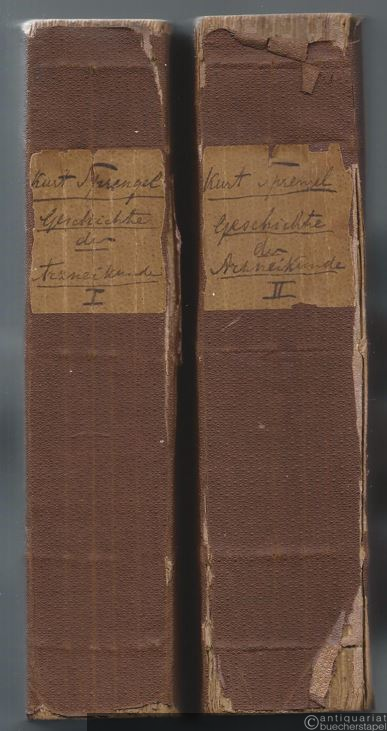 Kurt Sprengel
Geschichte
der
Arzneikunde
I
Kurt Sprengel
Geschichte
der
Arzneikunde
II
© antiquariat
buecherstapel